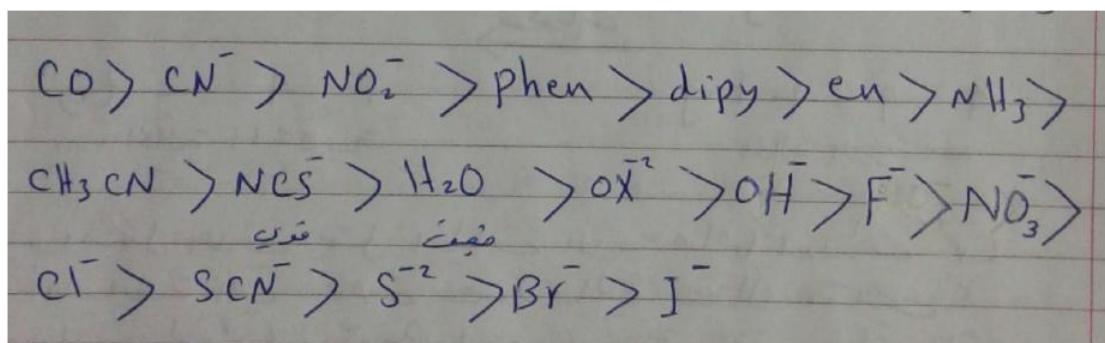 CO > CN⁻ > NO₂⁻ > phen > dipy > en > NH₃ >
CH₃CN > NCS⁻ > H₂O > OX⁻² > OH⁻ > F⁻ > NO₃⁻ >
قوي ضعيف
Cl⁻ > SCN⁻ > S⁻² > Br⁻ > I⁻